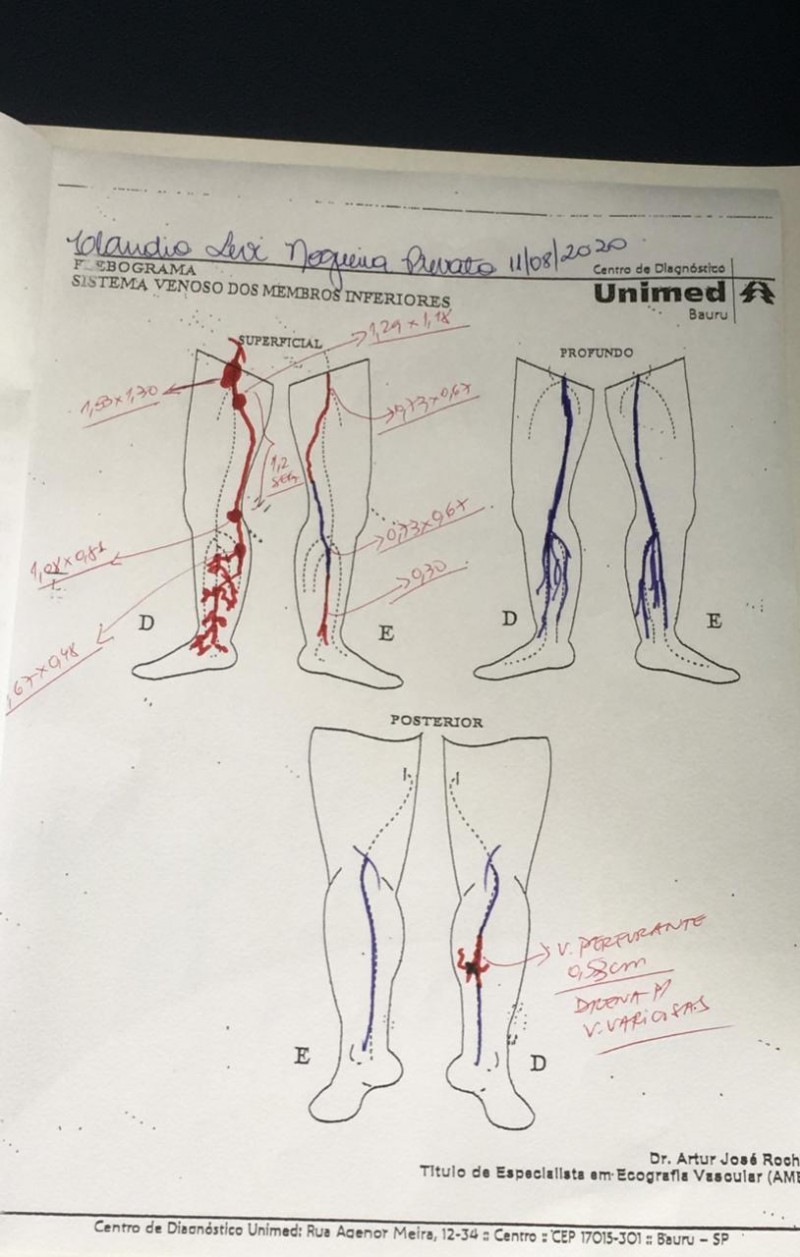 Iolandio Levi Nogueira Prevato 11/08/2020
F EBOGRAMA
SISTEMA VENOSO DOS MEMBROS INFERIORES
Centro de Diagnóstico
Unimed
Bauru
SUPERFICIAL
PROFUNDO
1,29 x 1,18
1,53 x 1,30
0,73 x 0,67
1,2
SEG
0,73 x 0,67
1,08 x 0,81
0,30
,67 x 0,48
D
E
D
E
POSTERIOR
V. PERFURANTE
0,53cm
DRENA P/
V. VARICOSAS
E
D
Dr. Artur José Roch
Título de Especialista em Ecografia Vascular (AMB
Centro de Diagnóstico Unimed: Rua Agenor Meira, 12-34 :: Centro :: CEP 17015-301 :: Bauru – SP